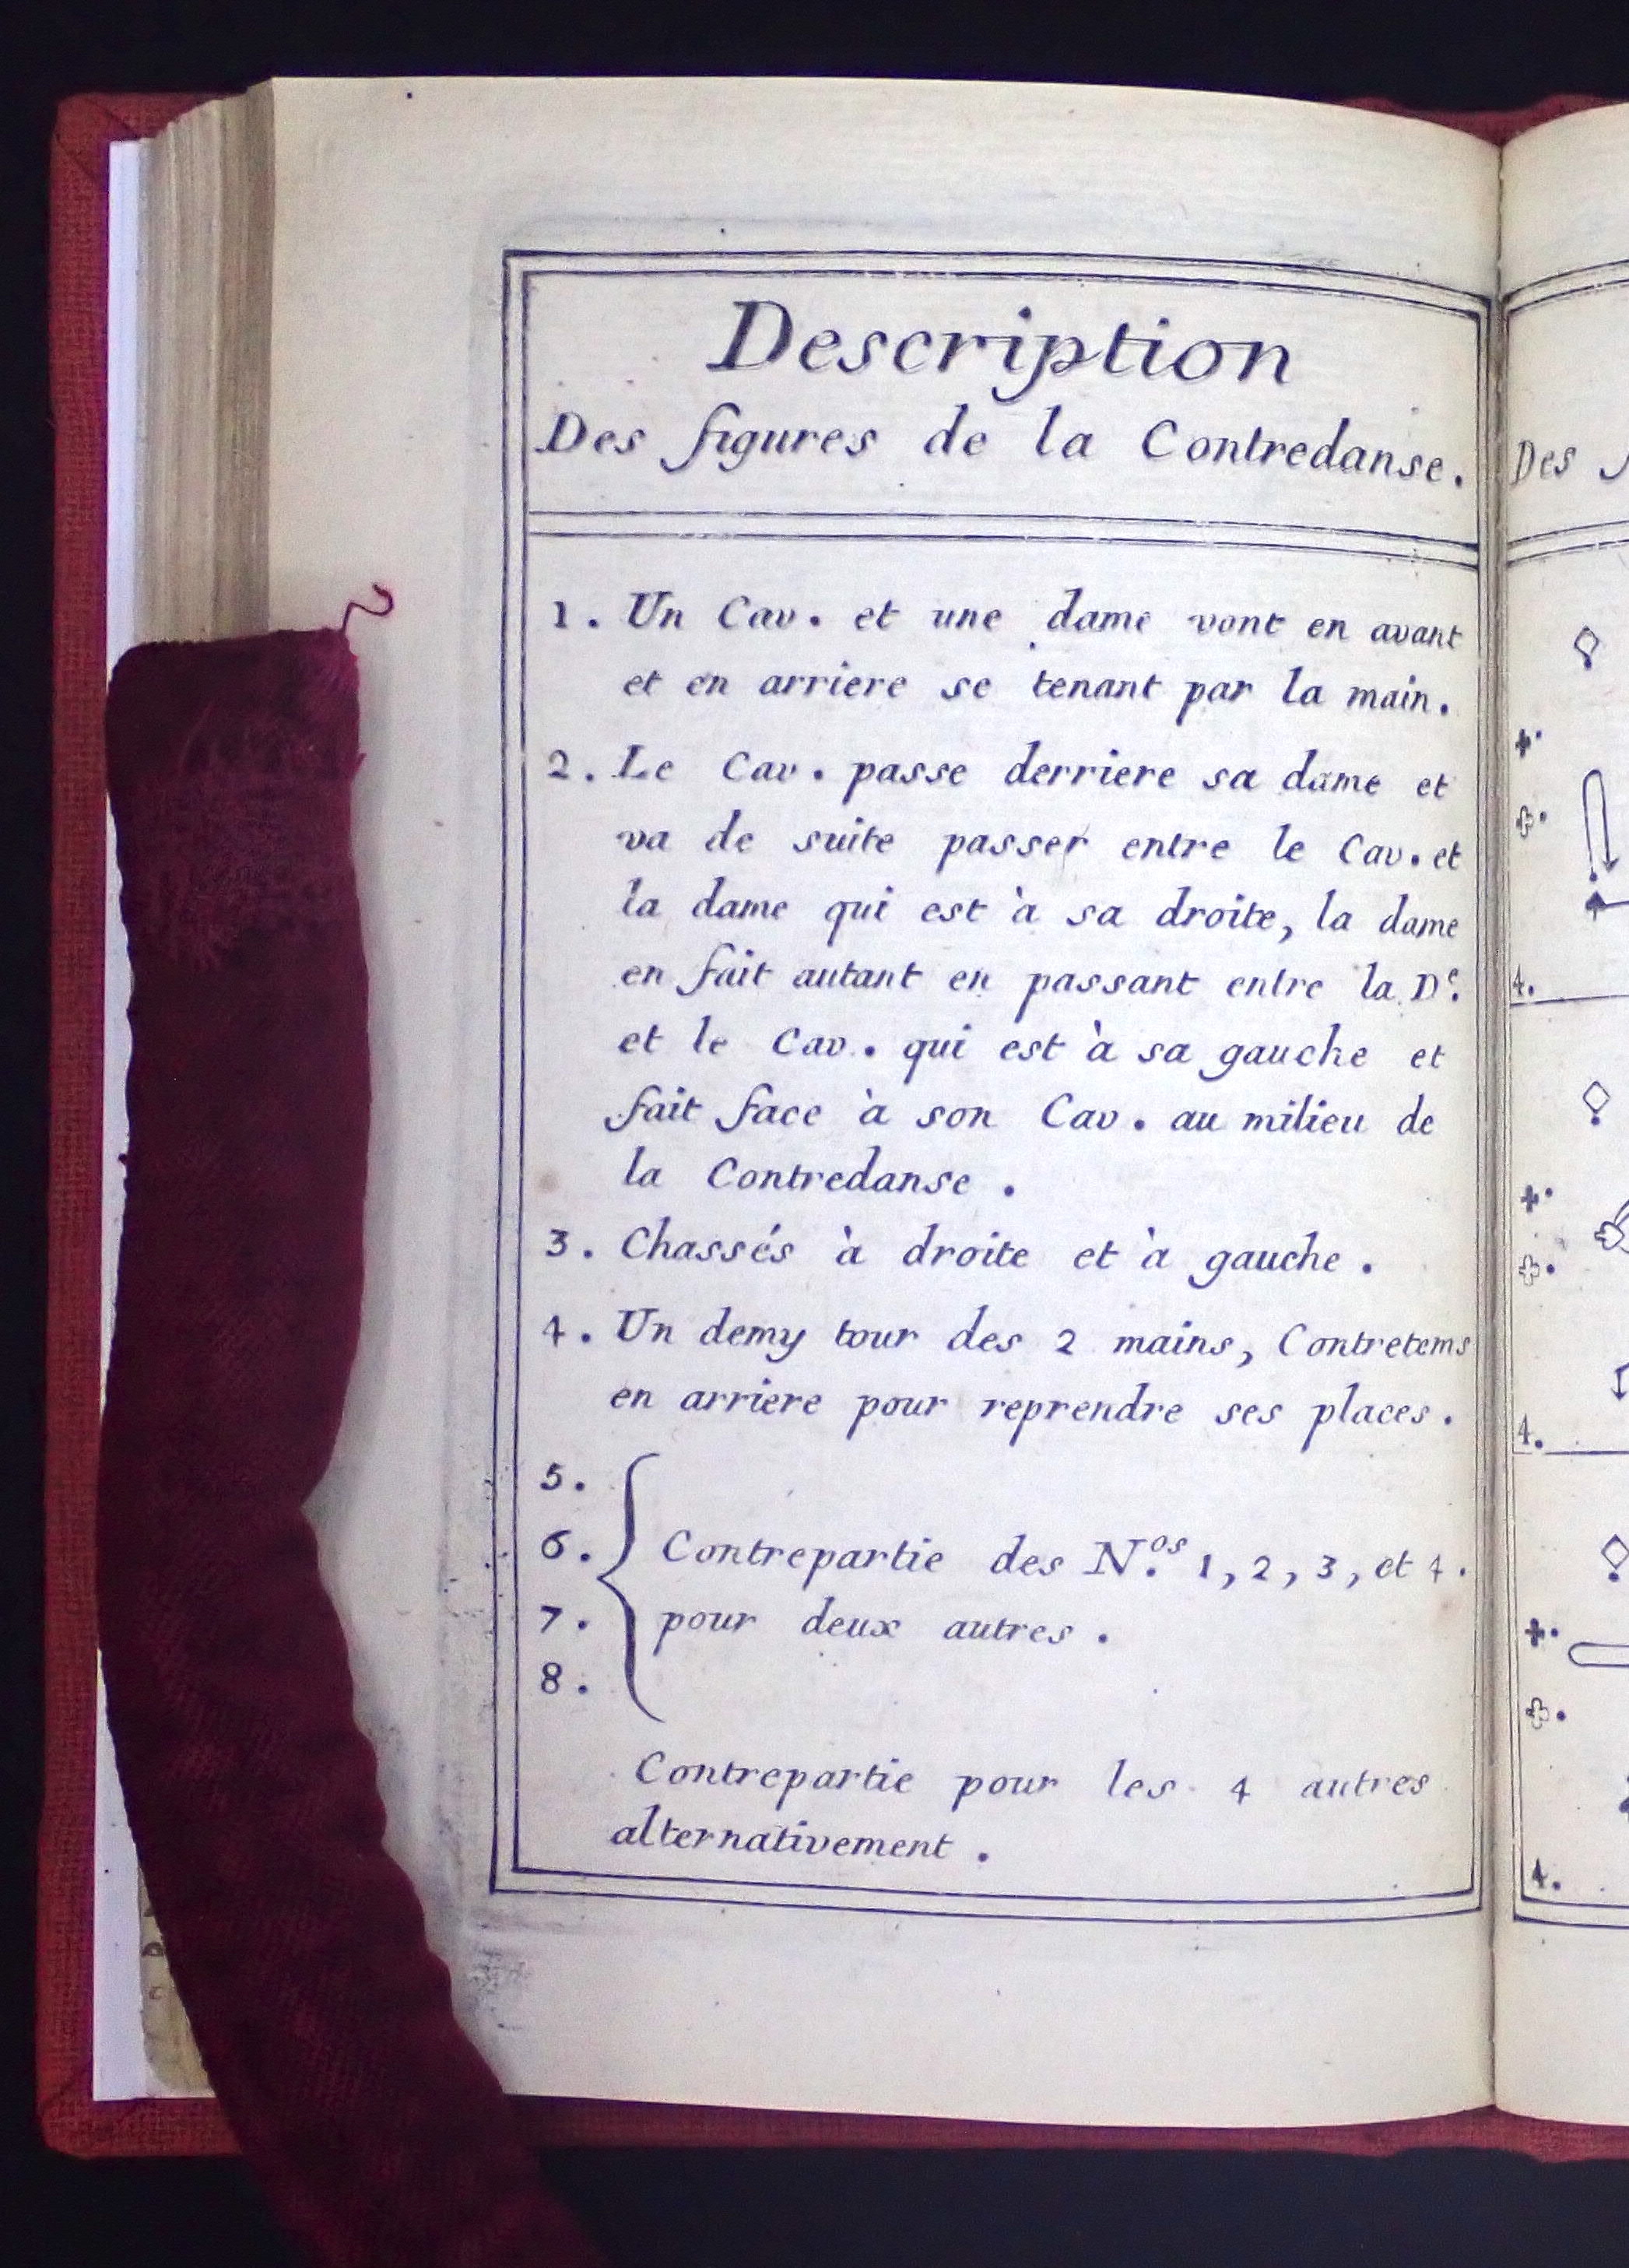 Description
Des figures de la Contredanse.
1. Un Cav. et une dame vont en avant
et en arriere se tenant par la main.
2. Le Cav. passe derriere sa dame et
va de suite passer entre le Cav. et
la dame qui est à sa droite, la dame
en fait autant en passant entre la D.e
et le Cav. qui est à sa gauche et
fait face à son Cav. au milieu de
la Contredanse.
3. Chassés à droite et à gauche.
4. Un demy tour des 2 mains, Contretems
en arriere pour reprendre ses places.
5.
6. Contrepartie des N.os 1, 2, 3, et 4.
7. pour deux autres.
8.
Contrepartie pour les 4 autres
alternativement.
Des
4.
4.
4.